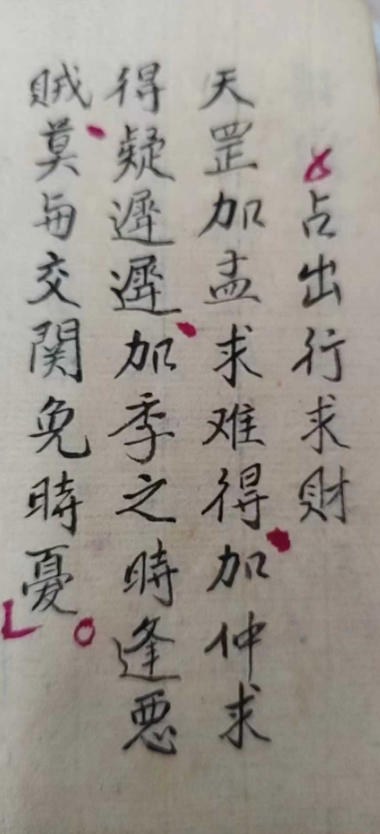 占出行求財
天罡加孟求难得加仲求
得疑遲遲加季之時逢惡
賊莫每交関免時憂